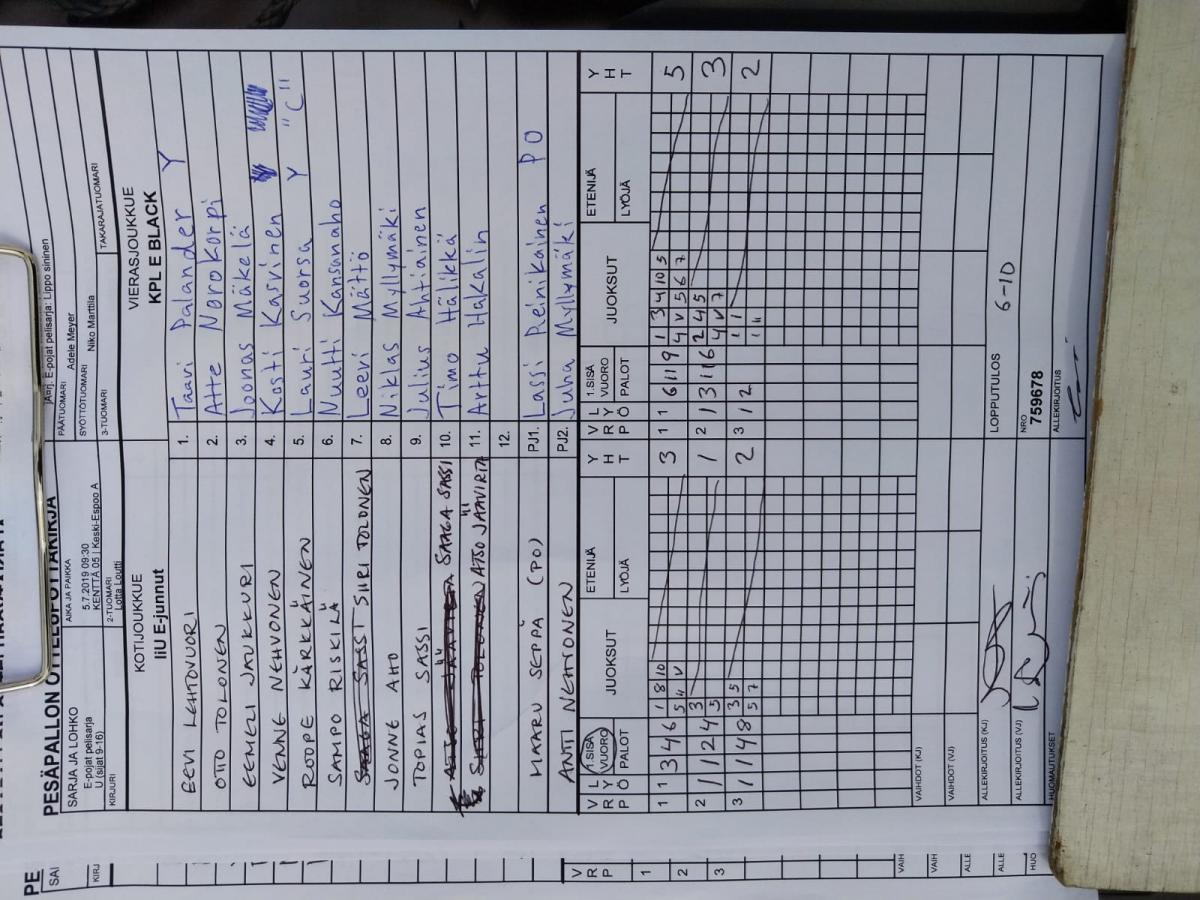 PESÄPALLON OTTELUPÖYTÄKIRJA
SARJA JA LOHKO
E-pojat pelisarja
U (sijat 9-16)
AIKA JA PAIKKA
5.7.2019 09:30
KENTTÄ 05 | Keski-Espoo A
KIRJURI
2-TUOMARI
Lotta Loutti
E-pojat pelisarja: Lippo sininen
PÄÄTUOMARI Adele Meyer
SYÖTTÖTUOMARI Niko Marttila
3-TUOMARI
TAKARAJATUOMARI
KOTIJOUKKUE
IiU E-junnut
VIERASJOUKKUE
KPL E BLACK
EEVI LEHTOVUORI 1. Taavi Palander Y
OTTO TOLONEN 2. Atte Norokorpi
EEMELI JAUKKURI 3. Joonas Mäkelä
VENNE NEHVONEN 4. Kosti Kasvinen
ROOPE KÄRKKÄINEN 5. Lauri Suorsa Y "C"
SAMPO RISKILÄ 6. Nuutti Kansanaho
SAAGA SASSI SIIRI TOLONEN 7. Leevi Mättö
JONNE AHO 8. Niklas Myllymäki
TOPIAS SASSI 9. Julius Ahtiainen
SAAGA SASSI 10. Timo Hälikkä
SIIRI TOLONEN ATSO JÄÄVIRTA 11. Arttu Hakalin
12.
MAARU SEPPÄ (PO) PJ1. Lassi Peinikainen PO
ANTTI NEHVONEN PJ2. Juha Myllymäki
VRP LYÖ 1.SISÄ VUORO PALOT JUOKSUT ETENIJÄ LYÖJÄ YHT
VRP LYÖ 1.SISÄ VUORO PALOT JUOKSUT ETENIJÄ LYÖJÄ YHT
1 1 3 4 6 1 8 10 3 1 1 6 11 9 1 3 4 10 5 5
5 4 V 4 V 5 6 7
2 1 1 2 4 3 1 2 1 3 11 6 2 4 5 3
5 4 V 7
3 1 1 4 8 3 5 2 3 1 2 1 1 2
5 7
VAIHDOT (KJ)
VAIHDOT (VJ)
ALLEKIRJOITUS (KJ)
LOPPUTULOS 6-10
ALLEKIRJOITUS (VJ)
NRO
7596678
HUOMAUTUKSET
ALLEKIRJOITUS
PE
SAI
KIRJ
VRP
LYÖ
1
2
3
VAIH
VAIH
ALLE
ALLE
HUO